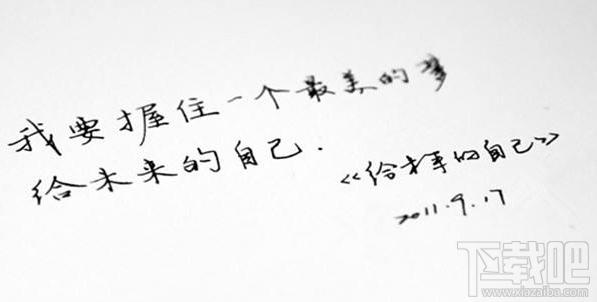 我要握住一个最美的梦
给未来的自己.
《给未来的自己》
2011.9.17
下载吧
www.xiazaiba.com